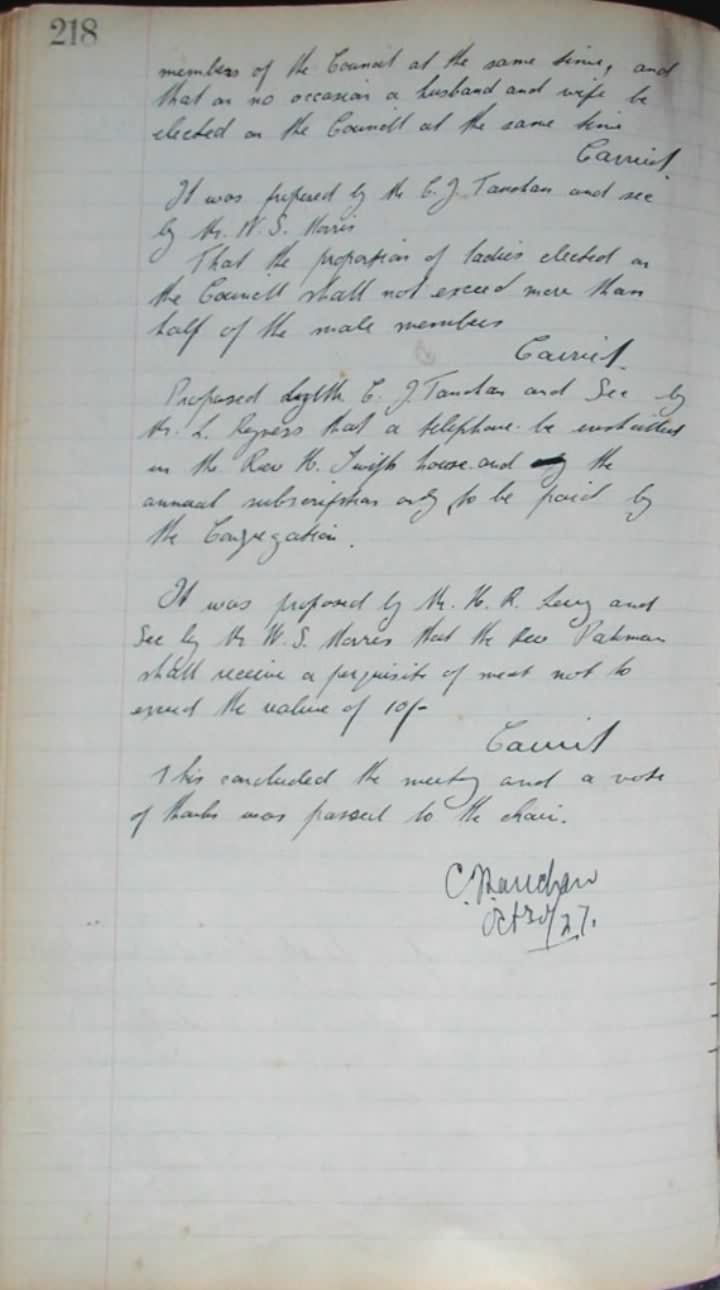 218
members of the Council at the same time, and
that on no occasion a husband and wife be
elected on the Council at the same time
Carried.
It was proposed by Mr C. J. Tanchan and sec
by Mr. W. S. Morris
That the proportion of ladies elected on
the Council shall not exceed more than
half of the male members
Carried.
Proposed by Mr C. J. Tanchan and Sec by
Mr. L. that a telephone be installed
in the Rev H. house and the
annual subscription only to be paid by
the Congregation.
It was proposed by Mr. H. R. Levy and
Sec by Mr W. S. Morris that the Rev
shall receive a perquisite of meat not to
exceed the value of 10/-
Carried
This concluded the meeting and a vote
of thanks was passed to the chair.
C. Tanchan
Oct 30/27.